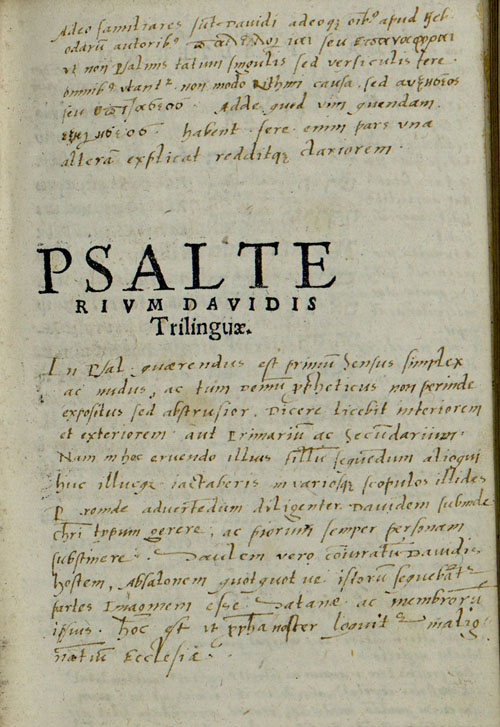 Adeo familiares sūt Davidi adeoqȝ oībꝰ apud Heb
autoribꝰ seu
ut non Psalmis tātum singulis sed versiculis fere
omnibꝰ utant᷑ non modo Rithmi causa sed αυξησεος
seu Adde quod vim quendam
habent fere enim pars una
alterā explicat redditqȝ clariorem
PSALTE
RIVM DAVIDIS
Trilinguæ.
In Psal. quærendus est primū sensus simplex
ac nudus, ac tum Demū ꝓheticus non perinde
expositus sed abstrusior. Dicere licebit interiorem
et exteriorem aut Primariū ac Secūdarium.
Nam in hoc eruendo illius sequēdum alioqui
huc illucqȝ iactaberis in variosqȝ scopulos illides
Proinde advertēdum diligenter Davidem subinde
chr̄i typum gerere, ac piorum semper personam
substinere. Saulem vero Davidis
hostem, Absalonem quotquot ve istorū sequebāt᷑
partes Imaginem esse Satanæ ac membrorū
ipsius. hoc est ut noster loquit᷑ malig
nātiū Ecclesiæ.